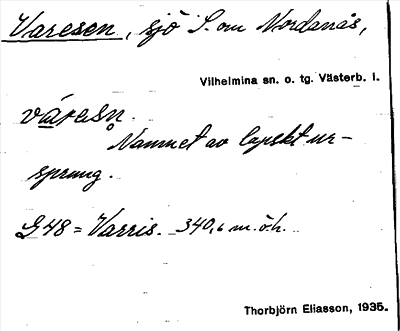 Varesen, sjö S. om Nordanås,
Vilhelmina sn. o. tg. Västerb. l.
váresn.
Namnet av lapskt ur-
sprung.
G48 = Varris. 340,6 m.ö.h.
Thorbjörn Eliasson, 1935.